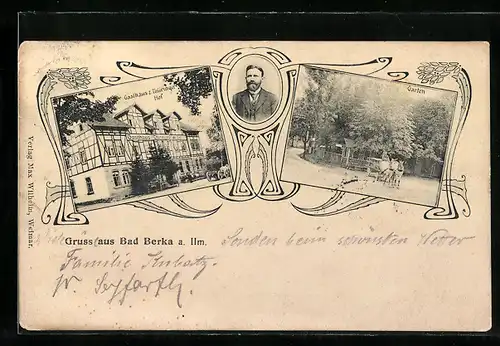 Gasthaus z. Thüring. Hof
Garten
Verlag Max Wilhelm, Weimar.
Gruss aus Bad Berka a. Ilm.
Senden beim schönsten Wetter
Familie